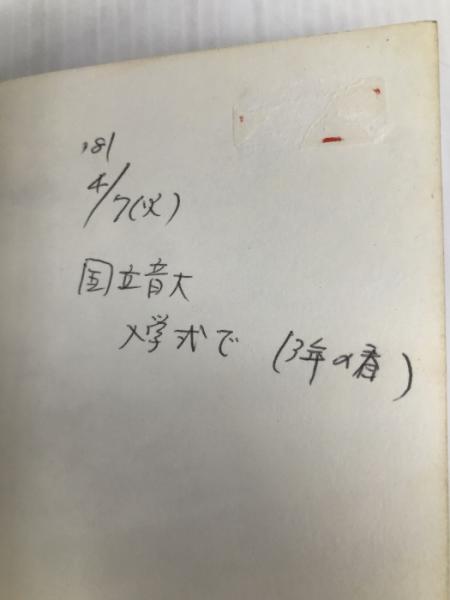 '81
4/7(火)
国立音大
入学式で (3年の春)